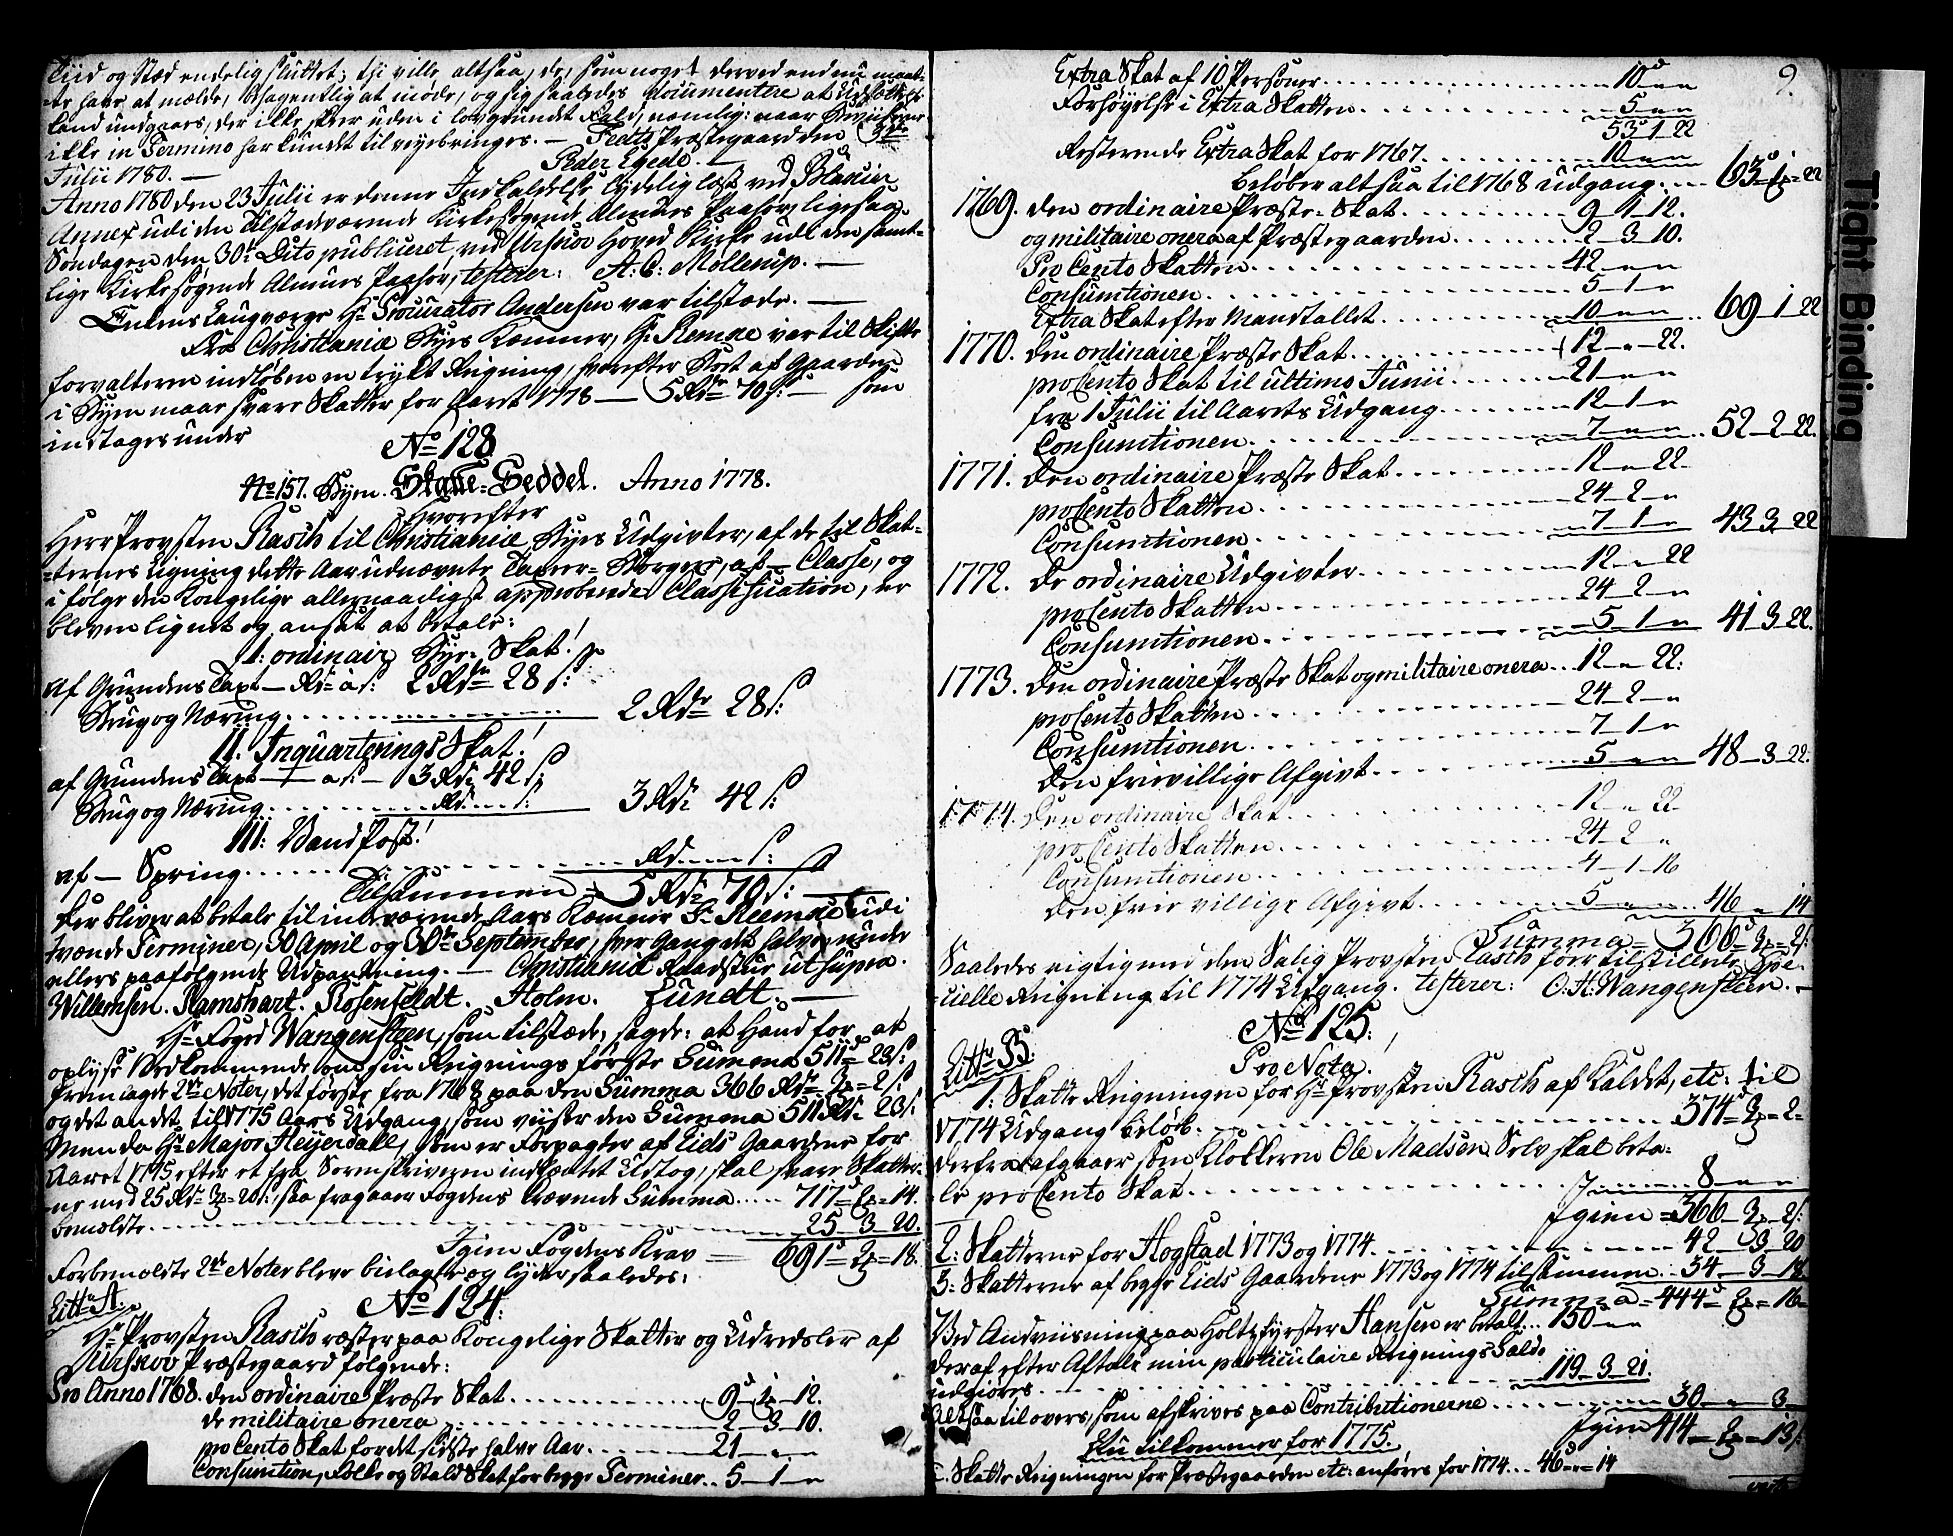 Tiid og Stæd endelig sluttet; thi ville altsaa, de, som noget derved endnu maat-
-te have at mælde, behagentlig at møde, og sig saaledes documentere at Udsættel-
land undgaaes, der ikke skeer uden i lovgrundet Fald, nemlig: naar Beviiserne
ikke in Termino har kundet tilveyebringes. — Fedts Præstegaard den 3die
Julii 1780. — Peder Egede. —
Anno 1780 den 23 Julii er denne Indkaldelse lydelig læst ved Blakier
Annex udi den tilstædeværende Kirkesøgende Almues Paahør, ligesaa
Søndagen den 30te Dito publiceret ved Urskov Hoved Kirke udi den samt-
lige Kirkesøgende Almues Paahør, testerer: A. C. Møllerup. —
Enkens Laugværge Hr Procurator Andersen var tilstæde. —
Fra Christiania Byes Kæmner, Hr Remme var til Skifte
forvalteren indløben en trykt Reigning, hvorefter Stort af Gaarden
i Byen maae svare Skatter for Aaret 1778 — 5 Rdr 70 s: — som
indtages under
No 128
No 157. Byen. Skatte-Seddel. Anno 1778.
Hvorefter
Herr Provsten Rasch til Christiania Byes Udgivter, af de til Skat-
-ternes Ligning dette Aar udnævnte Taxeer-Borgere, af — Classe, og
i følge den Kongelige allernaadigst approberede Classification, er
bleven lignet og ansat at betale:
I: ordinair Bye-Skat!
Af Grundens Taxt — Rd: à s: 2 Rdr 28 s:
Brug og Næring . . . . . . 2 Rdr 28 s:
II. Inquarterings Skat!
af Grundens Taxt — a s: — 3 Rdr 42 s:
Brug og Næring . . . . . . Rd: s: 3 Rdr 42 s
III: Vandpost!
af — Spring . . . . . . Rd s:
Tilsammen = 5 Rdr 70 s: —
Der bliver at betale til indeværende Aars Kæmner Hr Reemme udi
tvænde Terminer, 30 April og 30te September, hver Gang det halve, under
ellers paafølgende Udpantning. — Christiania Raadstue ut supra.
Willemsen. Ramshart. Rosenfeldt. Holm. Lundt. —
Hr Foged Wangensteen, som tilstæde, sagde: at Hand for at
oplyse Vedkommende om sin Reignings første Summa 511d 23 s:
fremlagde 2de Noter, det første fra 1768 paa den Summa 366 Rdr 2 = 2 s:
og det andet til 1775 Aars Udgang, som viiste den Summa 511 Rd: 23 s:
Men da Hr Major Heyerdahl, som er Forpagter af Eids Gaardene for
Aaret 1775 efter et fra Sorenskriveren indhæntet Udtog, skal svare Skatter-
ne med 25 Rd = 3 = 20 s:, saa fragaaer Fogdens krævende Summa . . . . 717d = 2 = 14.
bemeldte . . . . . . 25 — 3 — 20.
Igien Fogdens Krav = 691d = 2 = 18.
Forbemeldte 2de Noter bleve bielagte og lyder saaledes:
Litt: A: No 124:
Hr Provsten Rasch ræsterer paa Kongelige Skatter og Udredsler af
Urskov Præstegaard følgende:
Pro Anno 1768. den ordinaire Præste Skat . . . . . . 9 — 1 — 12.
de militaire onera . . . . . . 2 — 3 — 10.
pro Cento Skat for det sidste halve Aar . . . . . . 21 — „ — „
Consumtion, Folke og Stald Skat for begge Terminer . . 5 — 1 — „
9.
Extra Skat af 10 Personer . . . . . . 10d „ — „
Forhøyelse i Extra Skatten . . . . . . 5 „ — „
53d 1. 22
Resterende Extra Skat for 1767 . . . . . . 10 „ — „
beløber altsaa til 1768 Udgang . . . . 63d = 1 = 22
1769. den ordinaire Præste-Skat . . . . . . 9 — 1 — 12.
og militaire onera af Præstegaarden . . . . . . 2 — 3 — 10.
Pro Cento Skatten . . . . . . 42 — „ — „
Consumtionen . . . . . . 5 — 1 — „
Extra Skat efter Mandtallet . . . . . . 10 „ — „ . . 69 — 1 — 22
1770. den ordinaire Præste Skat . . . . . . 12 — „ — 22.
pro Cento Skat til ultimo Junii . . . . . . 21 — „ — „
fra 1 Julii til Aarets Udgang . . . . . . 12 — 1 — „
Consumtionen . . . . . . 7 — „ — „ . . 52 — 2 — 22.
1771. den ordinaire Præste Skat . . . . . . 12 — „ 22.
pro Cento Skatten . . . . . . 24 — 2 — „
Consumtionen . . . . . . 7 — 1 — „ 43 — 3 — 22
1772. De ordinaire Udgivter . . . . . . 12 — „ — 22
pro Cento Skatten . . . . . . 24 — 2 — „
Consumtionen . . . . . . 5 — 1 — „ 41 — 3 — 22.
1773. den ordinaire Præste Skat og militaire onera . . 12 — „ 22:
pro Cento Skatten . . . . . . 24 — 2 — „
Consumtionen . . . . . . 7 — 1 — „
den frivillige Afgivt . . . . . . 5 — „ — „ 48 — 3 — 22:
1774. den ordinaire Skat . . . . . . 12 — „ 22
pro Cento Skatten . . . . . . 24 — 2 — „
Consumtionen . . . . . . 4 — 1 — 16
den frie villige Afgivt . . . . . . 5 — „ — „ . . 46 — „ — 14
Summa = 366d = 2 = 2 s:
Saaledes rigtig med den Salig Provsten Rasch forretilstillede Spe-
-cielle Reigning til 1774 Udgang. testerer: O: H: Wangensteen. —
No 125:
Litt: B: Pro Nota!
1: Skatte Reigningen for Hr Provsten Rasch af Kaldet, etc: til
1774 Udgang beløb . . . . . . 374d = 2 = 2 =
Derfra afgaaer som Klokkeren Ole Madsen Selv skal beta-
-le pro Cento Skat . . . . . . 8 — „ — „
Igien = 366 — 2 — 2 s:
2: Skatterne for Hogstad 1773 og 1774 . . . . . . 42 — 3 — 20
3: Skatterne af begge Eids Gaardene 1773 og 1774 tilsammen . . 34 — 3 — 18
Summa = 444d = 2 = 16 =
Ved Andviisning paa Holtzfyrster Hansen er betalt . . 150 — „ — „
deraf efter Aftale min particulaire Reignings Saldo
udgiøres . . . . . . 119 — 3 — 21.
Altsaa til overs, som afskrives paa Contributionerne . . . . . . 30 — „ — 3
Igien 414 — 2 — 13 s:
Nu tilkommer for 1775.
1. Skatte Reigningen for Præstegaarden etc: anføres for 1774 . . . 46d = „ = 14